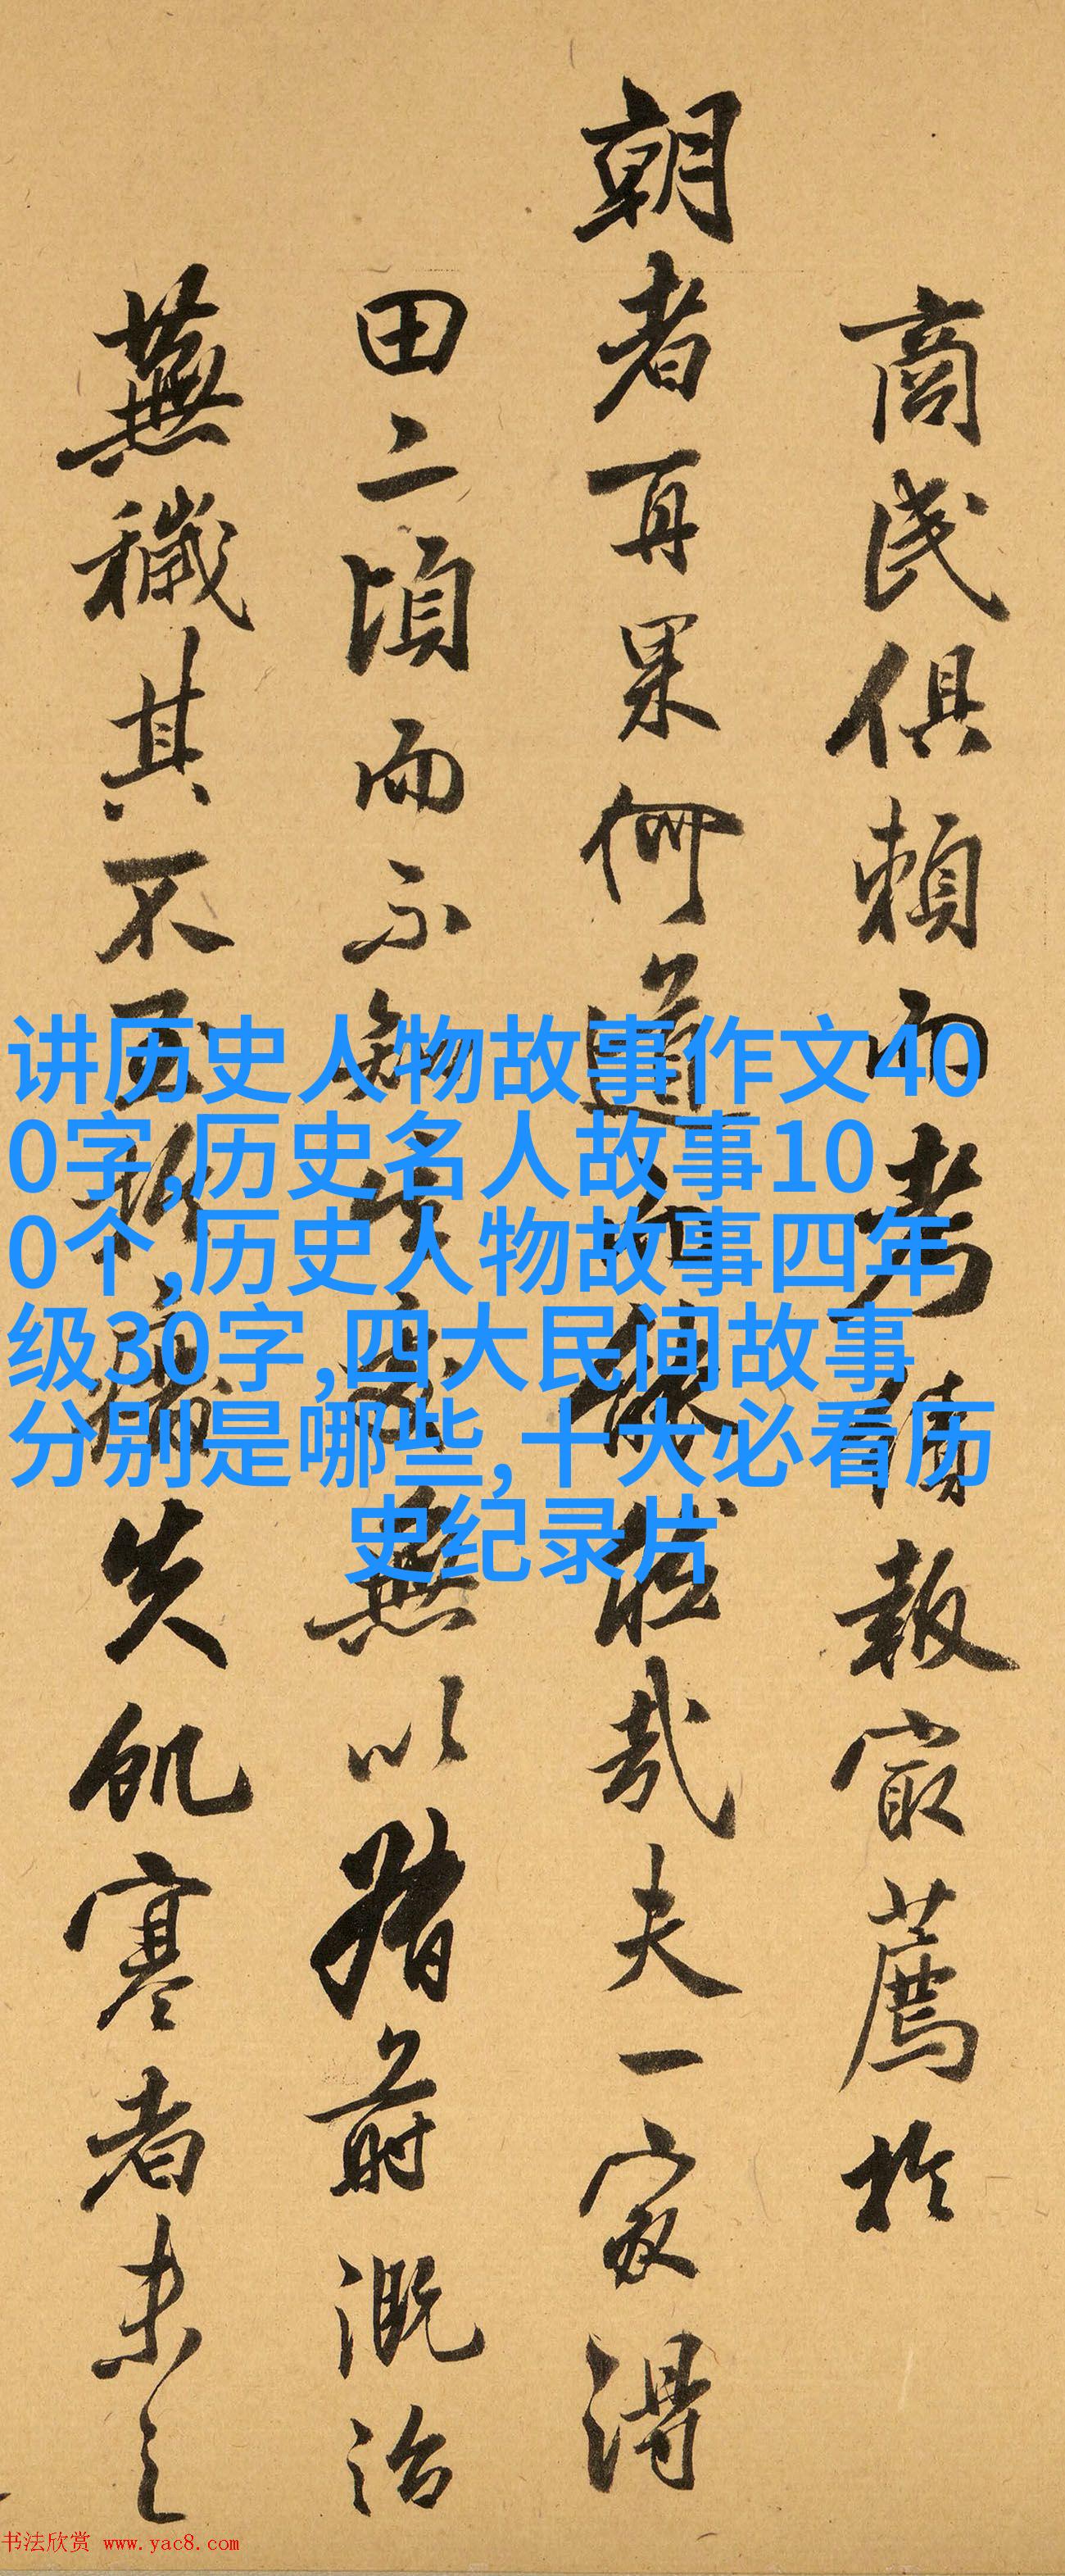 商民俱賴而考績報最薦於
朝者再果何道而
哉夫一家得
田二頃而不知
無以稽前溉治
蕪穢其不
失飢寒者未之
讲历史人物故事作文40
0字,历史名人故事10
0个,历史人物故事四年
级30字,四大民间故事
分别是哪些,十大必看历
史纪录片
书法欣赏 www.yac8.com